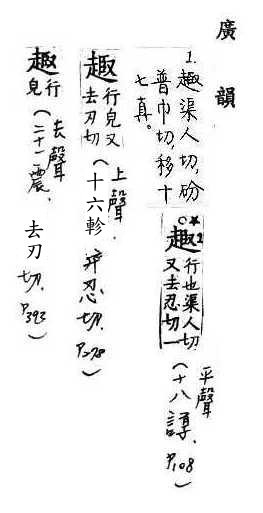 廣韻
1. 趣渠人切,砏
普巾切,移十
七真。
趣 行也渠人切
又去忍切一
(十八諄. P108)
平聲
趣 行皃又
去刃切
(十六軫. 弃忍切. P278)
上聲
趣 行
皃
(二十一震. 去刃切. P393)
去聲